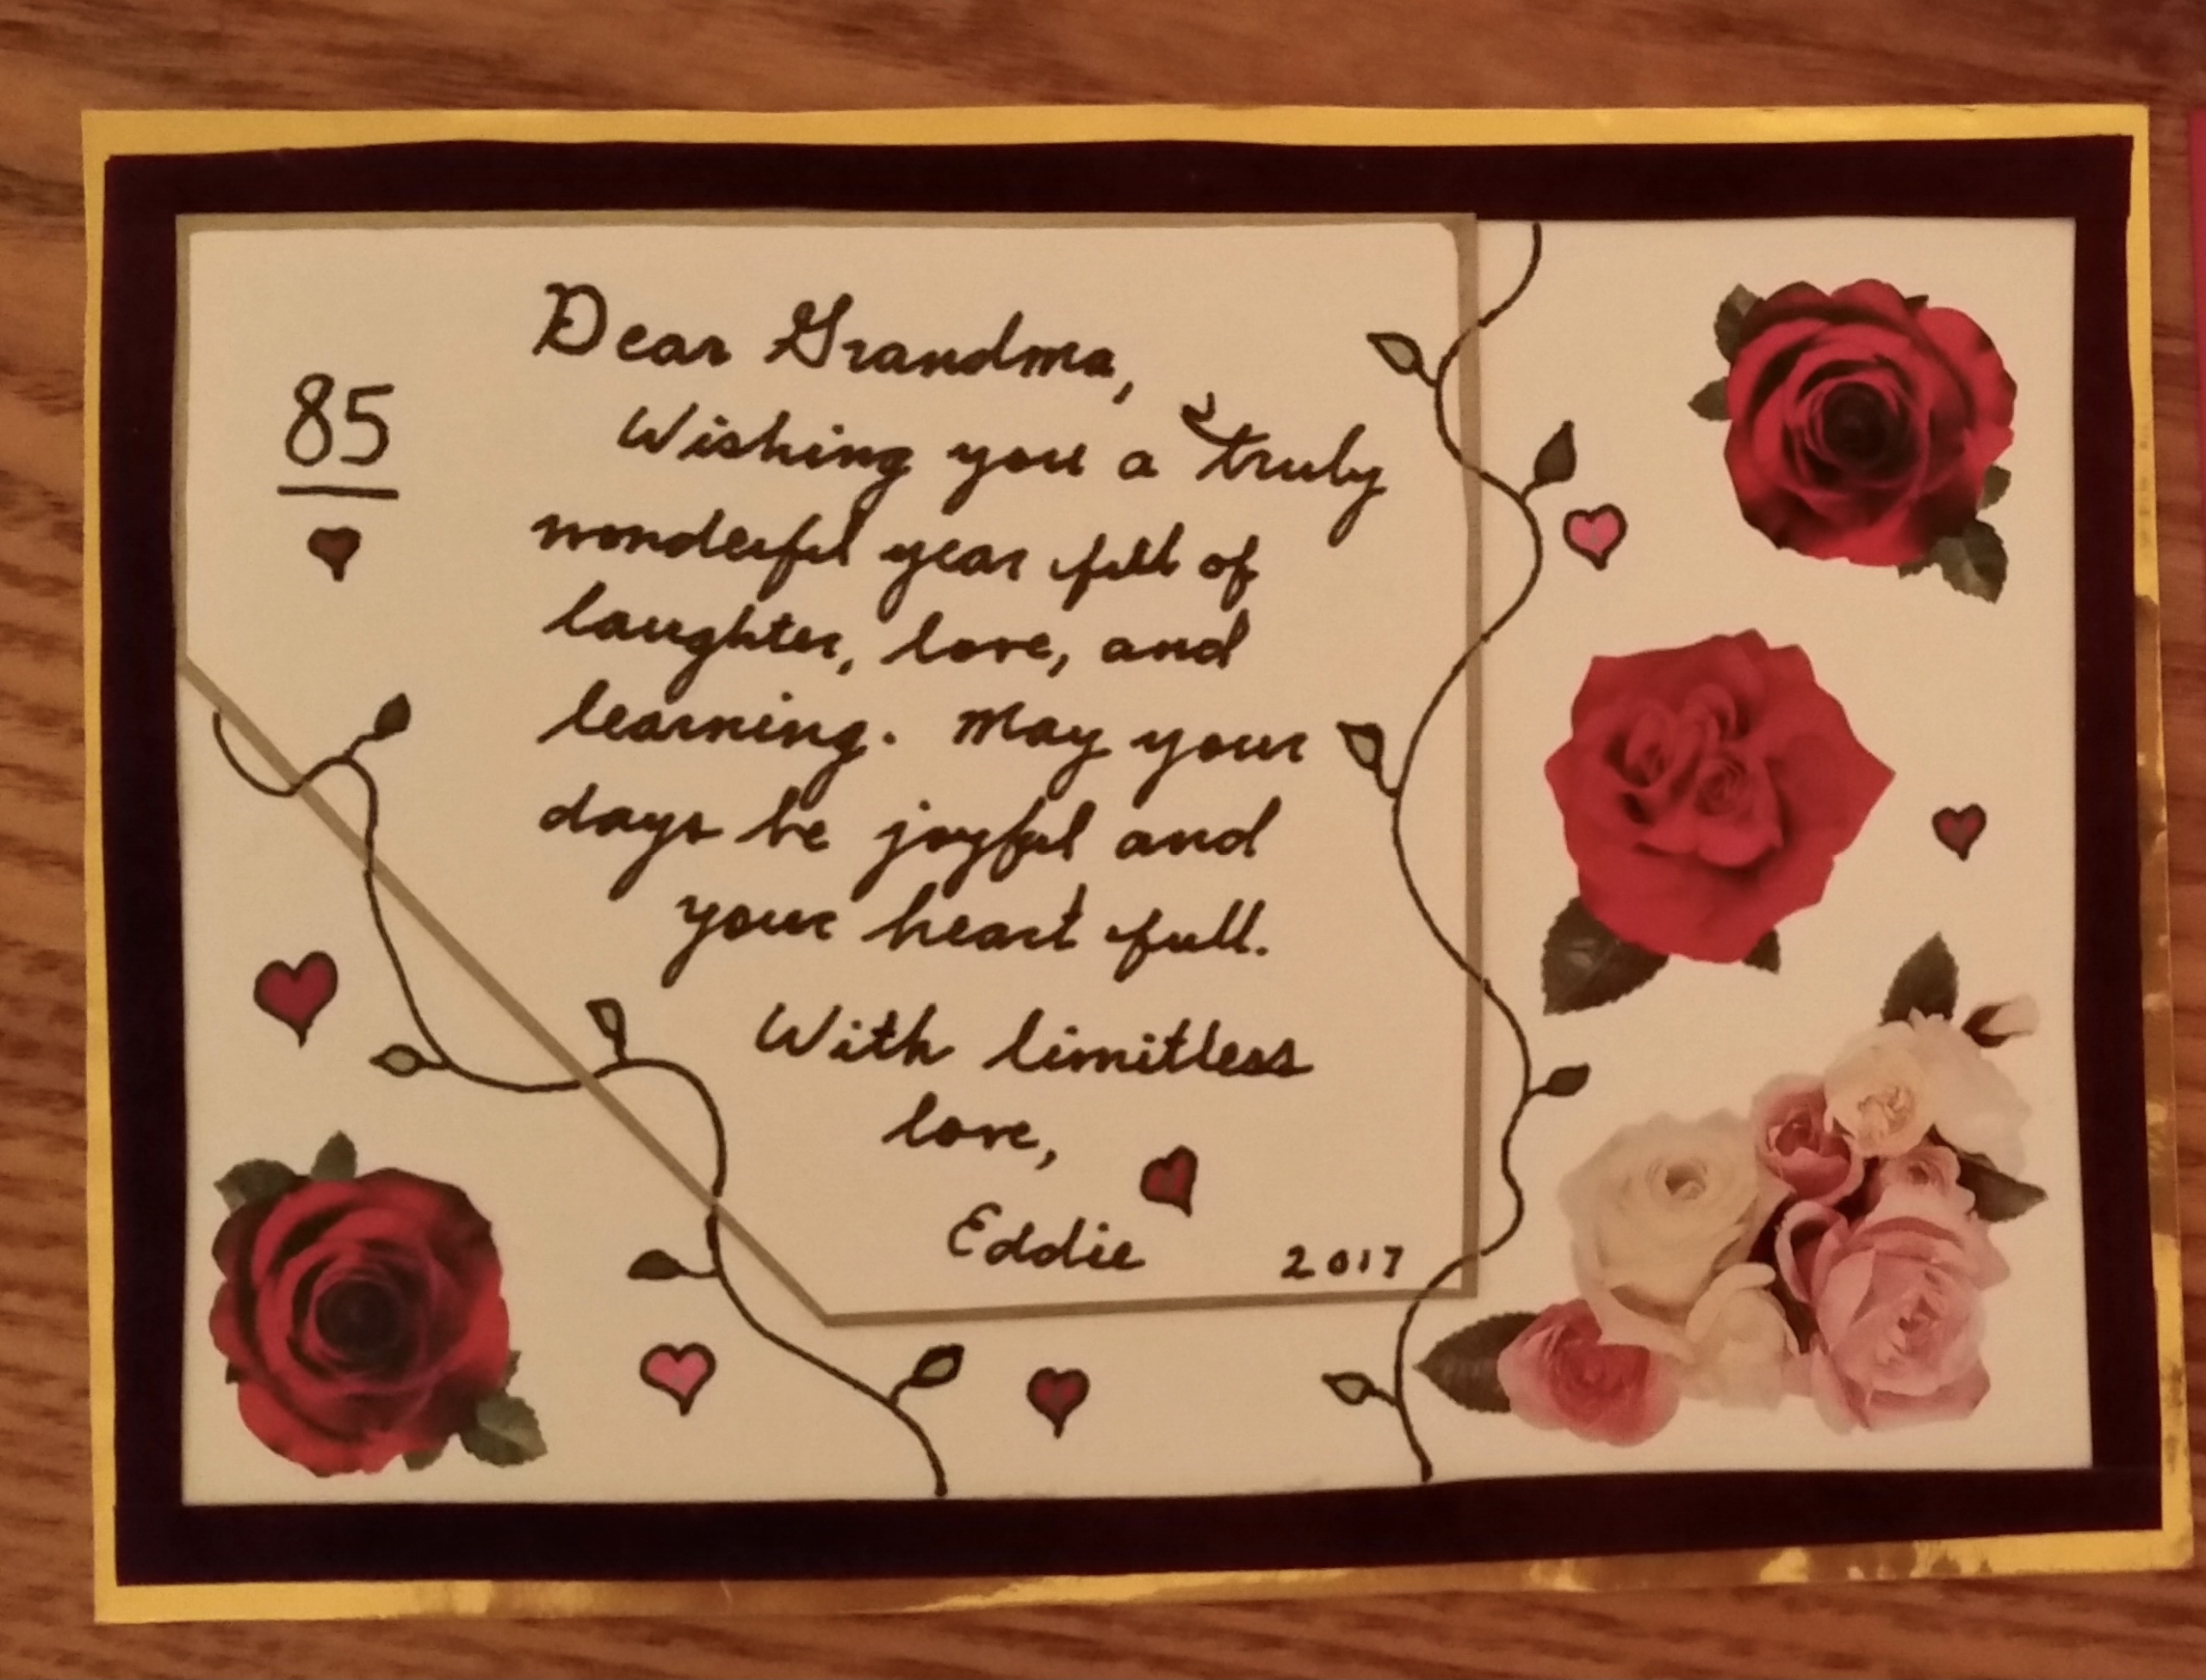 85
Dear Grandma,
Wishing you a truly
wonderful year full of
laughter, love, and
learning. May your
days be joyful and
your heart full.
With limitless
love,
Eddie
2017